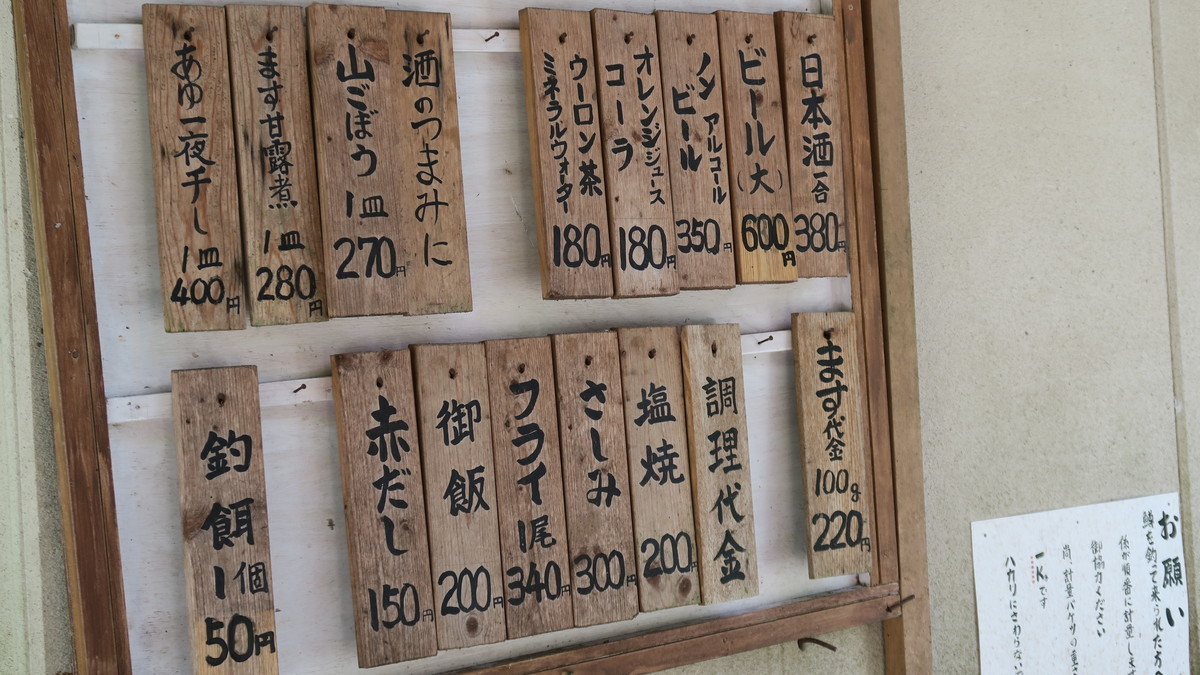 日本酒 一合 380円
ビール(大) 600円
ノンアルコール
ビール 350円
オレンジジュース
コーラ 180円
ウーロン茶
ミネラルウォーター 180円
酒のつまみに
山ごぼう 1皿 270円
ます甘露煮 1皿 280円
あゆ一夜干し 1皿 400円
ます代金 100g 220円
調理代金
塩焼 200円
さしみ 300円
フライ 1尾 340円
御飯 200円
赤だし 150円
釣餌 1個 50円
お願い
鱒を釣って来られた方
係が順番に計量します
御協力ください
尚、計量バケツの重さ
一K.です
ハカリにさわらない